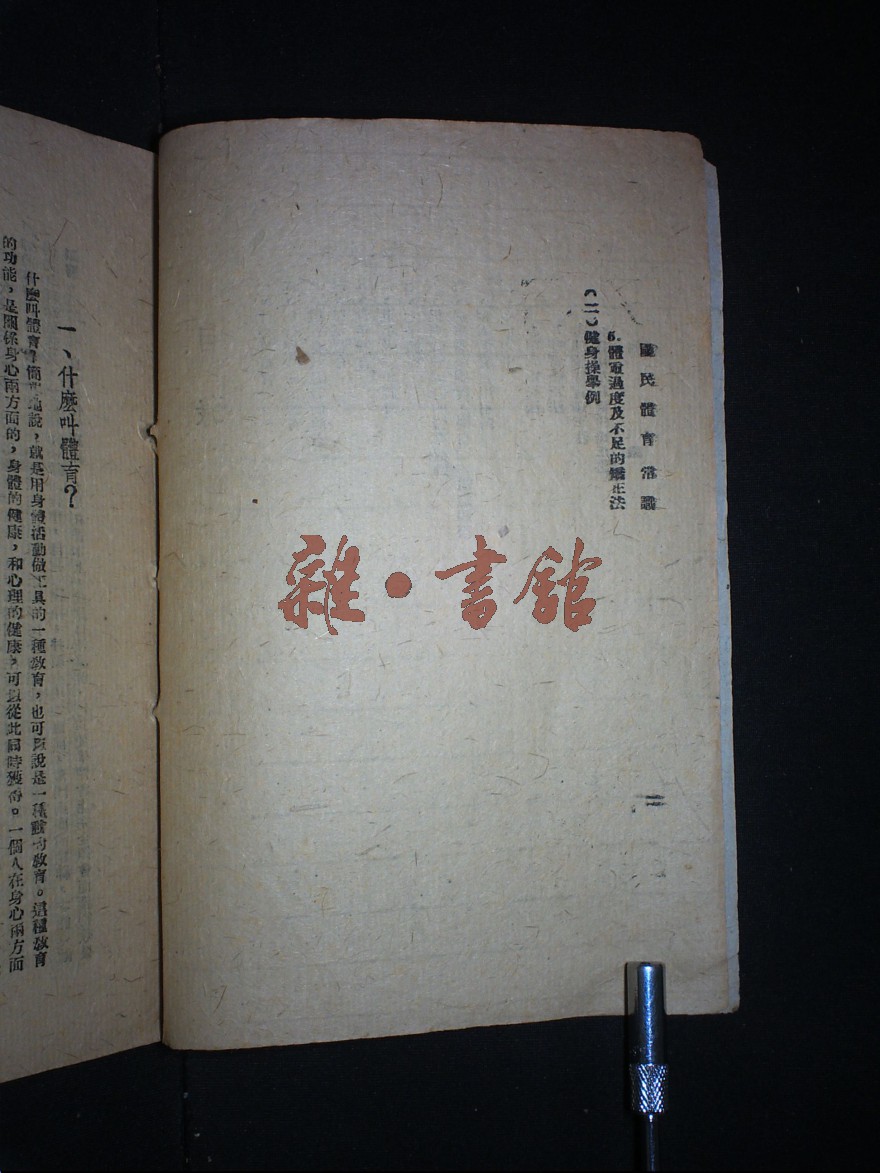 國民體育常識
6.體重過度及不足的矯正法
(二)健身操舉例
二
一、什麼叫體育?
什麼叫體育?簡單地說,就是用身體活動做工具的一種教育,也可以說是一種體的教育。這種教育
的功能,是關係身心兩方面的,身體的健康,和心理的健康,可以從此同時獲得。一個人在身心兩方面
雜·書館